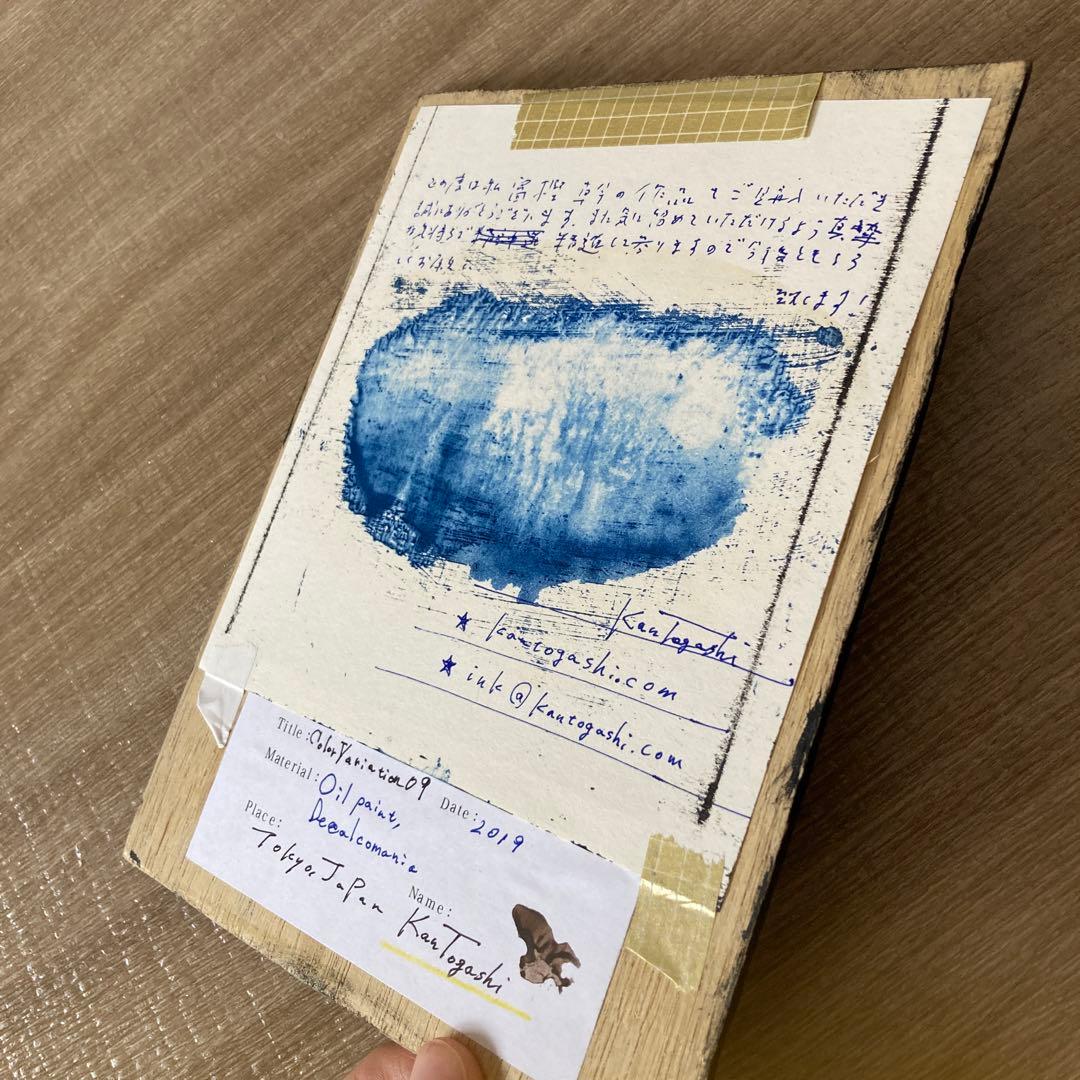 この度は私 富樫 幹の作品をご購入いただき
誠にありがとうございます。また気に留めていただけるよう真摯
な気持ちで 精進して参りますので今後ともよろ
しく
致します!
Kan Togashi
★ kantogashi.com
★ ink@kantogashi.com
Title: Color Variation 09
Date: 2019
Material: Oil paint,
Decalcomania
Place:
Tokyo, Japan
Name:
Kan Togashi